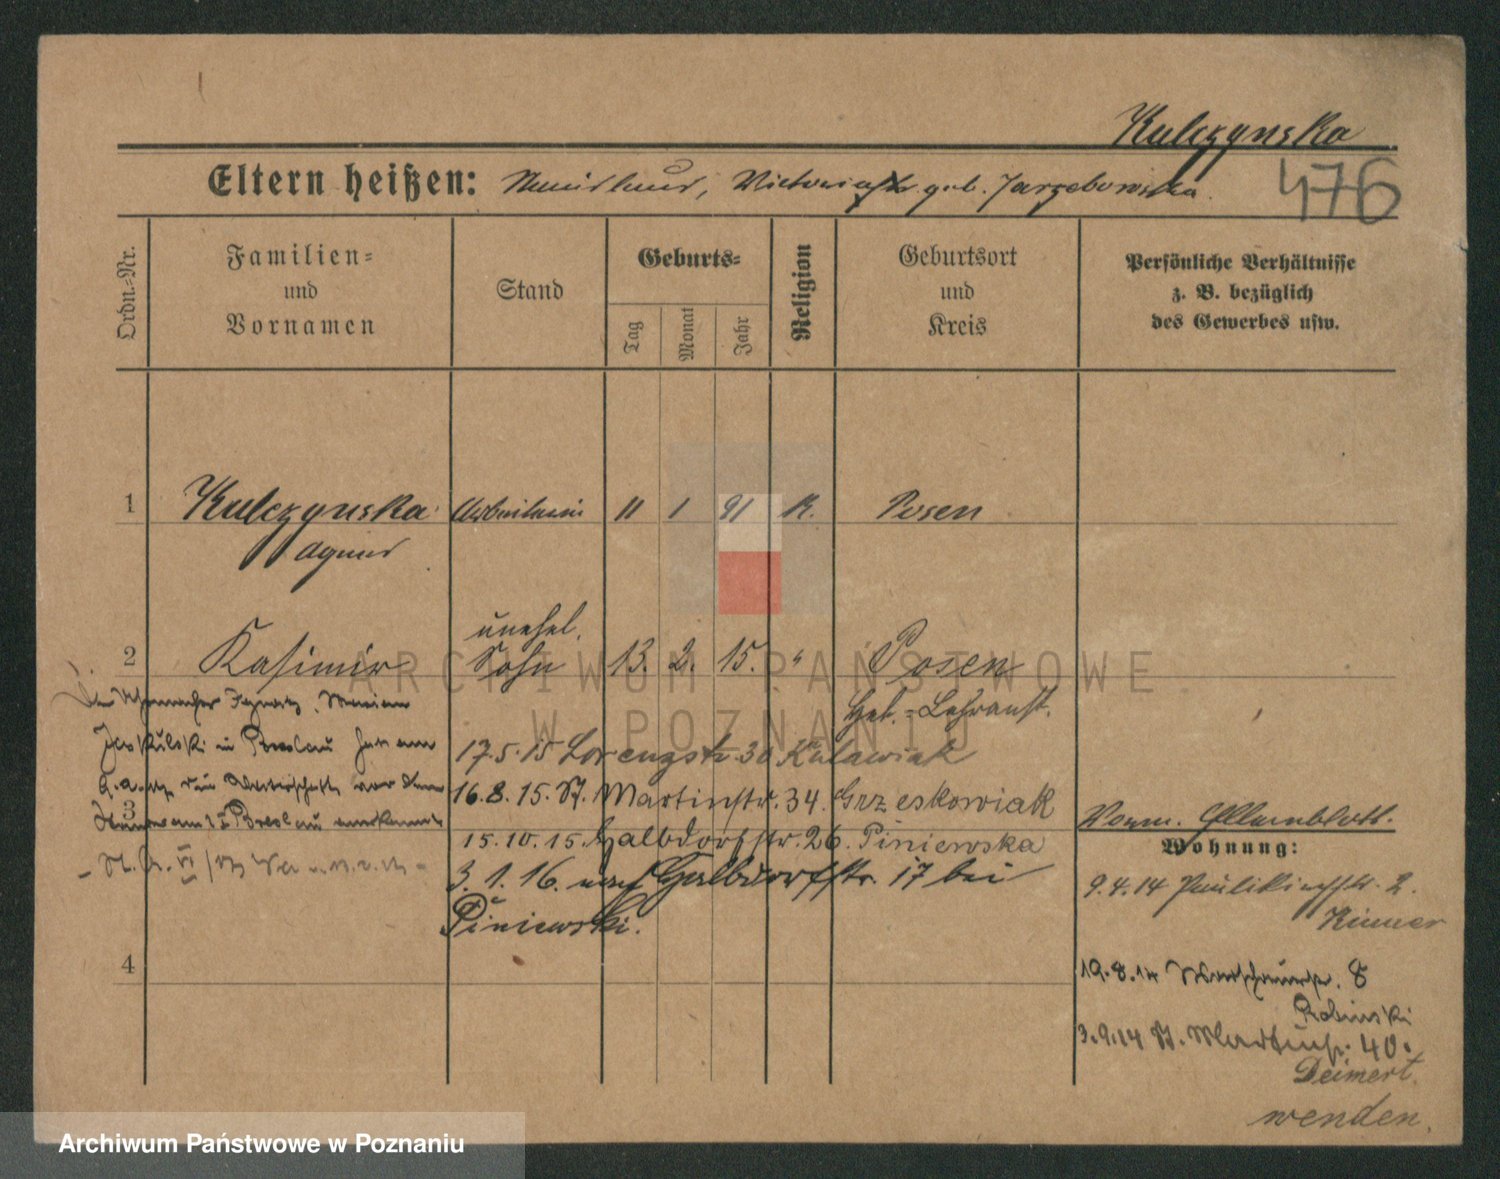 Kulczynska
476
Eltern heißen: Victoria geb. Jarzebowska.
Ordn.-Nr.
Familien-
und
Vornamen
Stand
Geburts-
Tag
Monat
Jahr
Religion
Geburtsort
und
Kreis
Persönliche Verhältnisse
z. B. bezüglich
des Gewerbes usw.
1 Kulczynska Arbeiterin 11 1 91 K. Posen
Agnes
unehel.
2 Kasimir Sohn 13. 2. 15. " Posen
Geb.-Lehranst.
Der Ignatz, Marian
in Breslau hat am
die Vaterschaft vor dem
3 Breslau anerkannt
17.5.15 Lorenzstr. 30 Kulawiak
16.8.15. St. Martinstr. 34. Grzeskowiak
15.10.15. Halbdorfstr. 26. Piniewska
3.1.16. nach Halbdorfstr. 17 bei
Piniewski.
4
Wohnung:
9.4.14 Paulikirchstr. 2.
19.8.14 8
Robinski
3.9.14 St. Martinstr. 40.
Deimert.
wenden.
ARCHIWUM PAŃSTWOWE
W POZNANIU
Archiwum Państwowe w Poznaniu